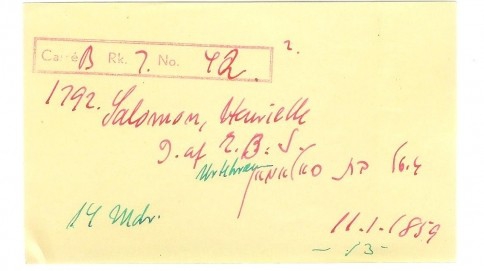 Carré B Rk. 7. No. 42. 2.
1792. Salomon, Henriette
D. af E. B. S.
בת
14 Mdr. 11.1.1859
- 13 -